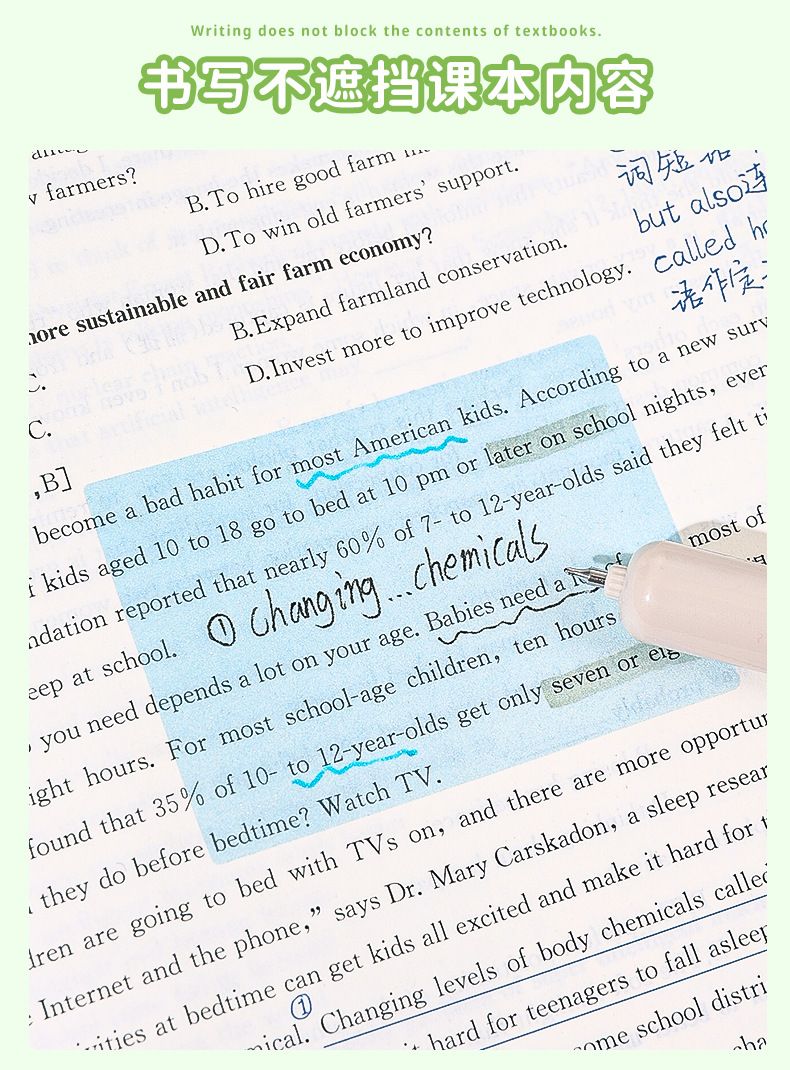 Writing does not block the contents of textbooks.
书写不遮挡课本内容
farmers?
B.To hire good farm
D.To win old farmers' support.
more sustainable and fair farm economy?
B.Expand farmland conservation.
D.Invest more to improve technology.
C.
C.
,B]
词短语
but also连
called
语作定
become a bad habit for most American kids. According to a new surv
kids aged 10 to 18 go to bed at 10 pm or later on school nights, even
ndation reported that nearly 60% of 7- to 12-year-olds said they felt ti
eep at school. ① changing...chemicals
you need depends a lot on your age. Babies need a most of
ight hours. For most school-age children, ten hours
found that 35% of 10- to 12-year-olds get only seven or eig
they do before bedtime? Watch TV.
dren are going to bed with TVs on, and there are more opportun
Internet and the phone,” says Dr. Mary Carskadon, a sleep resear
vities at bedtime can get kids all excited and make it hard for t
① mical. Changing levels of body chemicals called
it hard for teenagers to fall asleep
some school distri